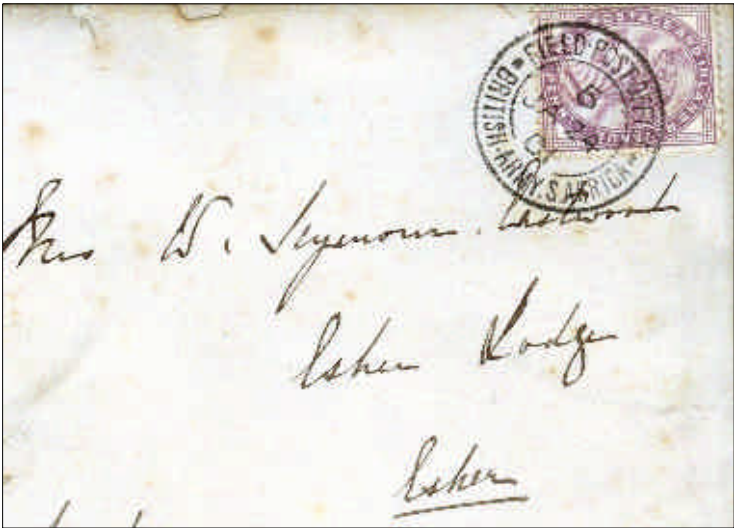 FIELD·POST·OFFICE
BRITISH·ARMY S.AFRICA
6
Mrs W. Seymour Eastwood
Esher Lodge
Esher